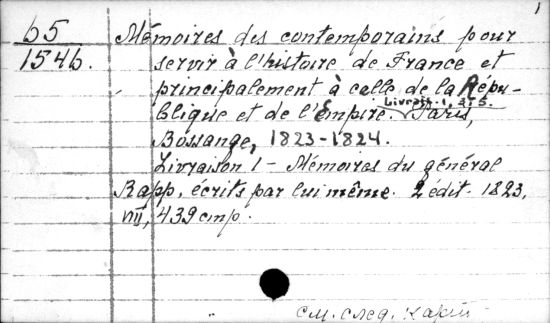 1
65
1546.
Mémoires des contemporains pour
servir à l'histoire de France et
principalement à celle de la Répu-
blique et de l'Empire. Livrais. 1, 2, 5. Paris,
Bossange, 1823-1824.
Livraison 1 - Mémoires du général
Rapp, écrits par lui même. 2 édit. 1823.
VIII, 439 стр.
см. след. карт.